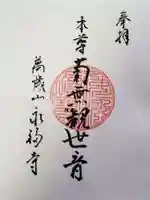 奉拝
本尊
南無観世音
萬歳山永福寺